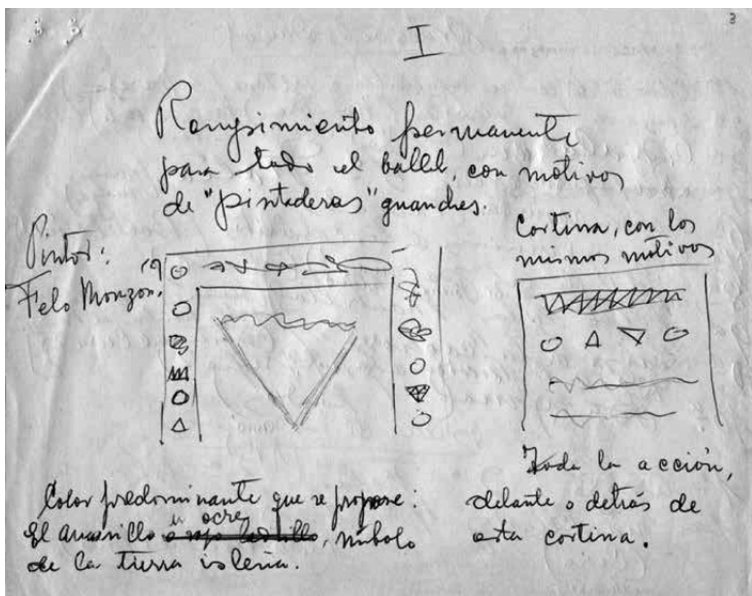 3
I
Rompimiento permanente
para todo el ballet, con motivos
de "pintaderas" guanches.
Pintor:
Felo Monzón.
Cortina, con los
mismos motivos
Color predominante que se propone:
El amarillo u ocre o rojo ladrillo, símbolo
de la tierra isleña.
Toda la acción,
delante o detrás de
esta cortina.